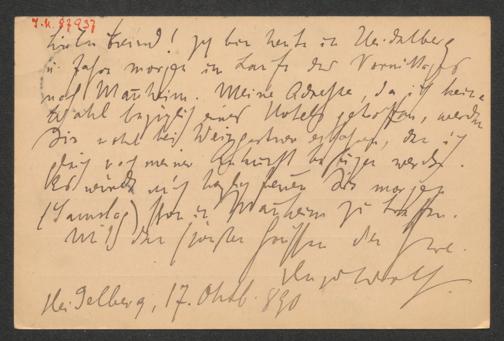 I.N. 97937
Lieber Freund! Ich bin heute in Heidelberg
u. fahre morgen im Laufe des Vormittages
nach Manheim. Meine Adresse, da ich keine
Wahl bezüglich eines Hotels getroffen, werden
Sie wohl bei Weingartner erfahren, den ich
gleich nach meiner Ankunft besuchen werde.
Es würde mich herzlich freuen Sie morgen
(Samstag) schon in Manheim zu treffen.
Mit den schönsten Grüssen der Ihre.
Hugo Wolf
Heidelberg, 17. Oktob. 890